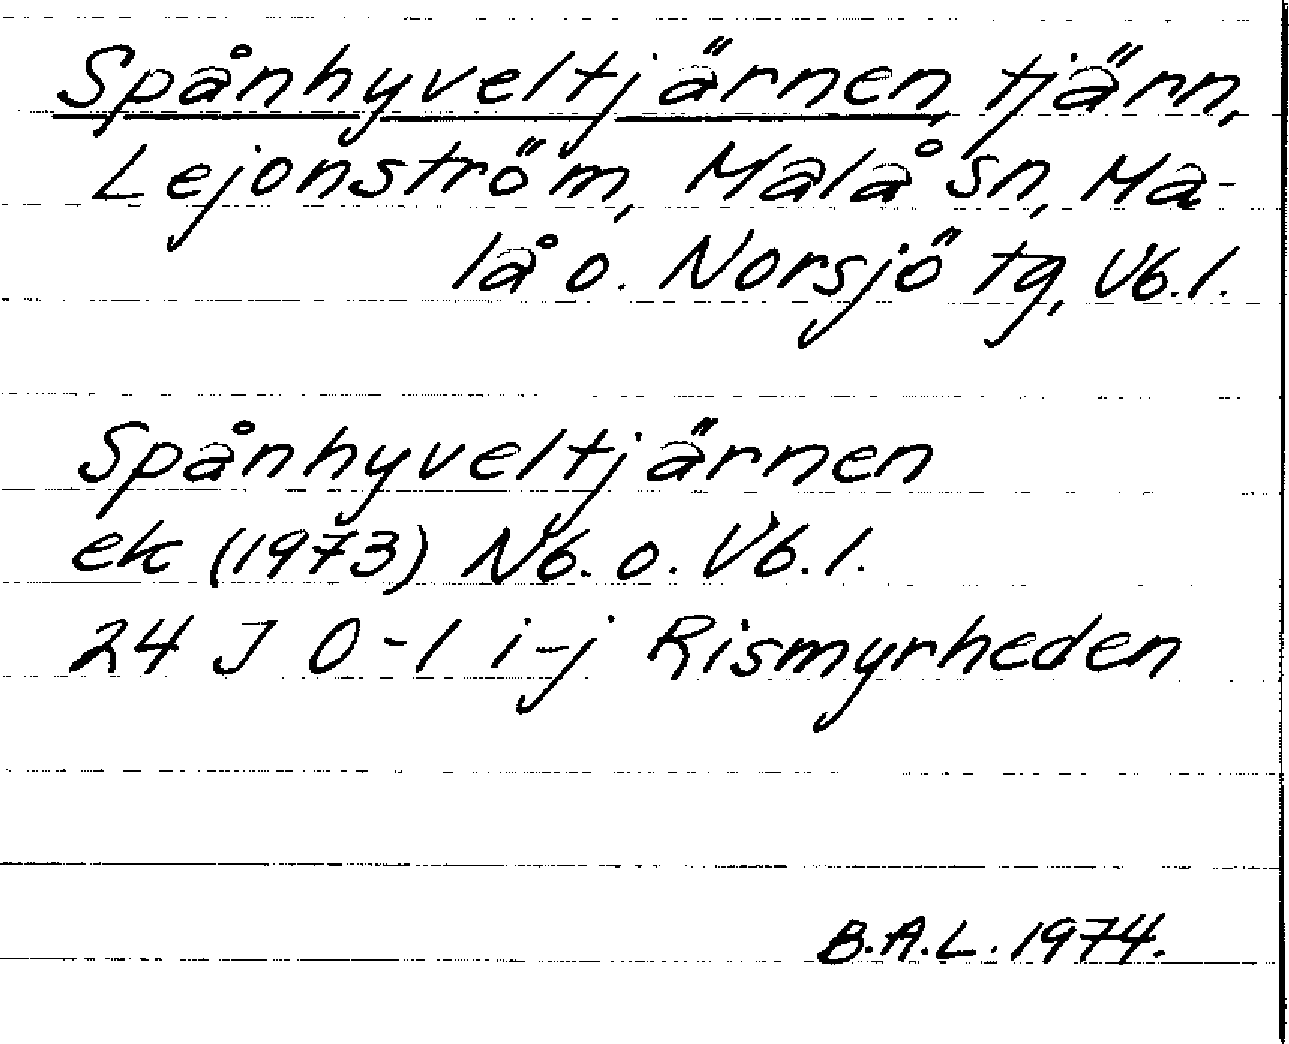 Spånhyveltjärnen, tjärn,
Lejonström, Malå sn, Ma-
lå o. Norsjö tg, Vb. l.
Spånhyveltjärnen
ek (1973) Nb. o. Vb. l.
24 J 0-1 i-j Rismyrheden
B.A.L. 1974.